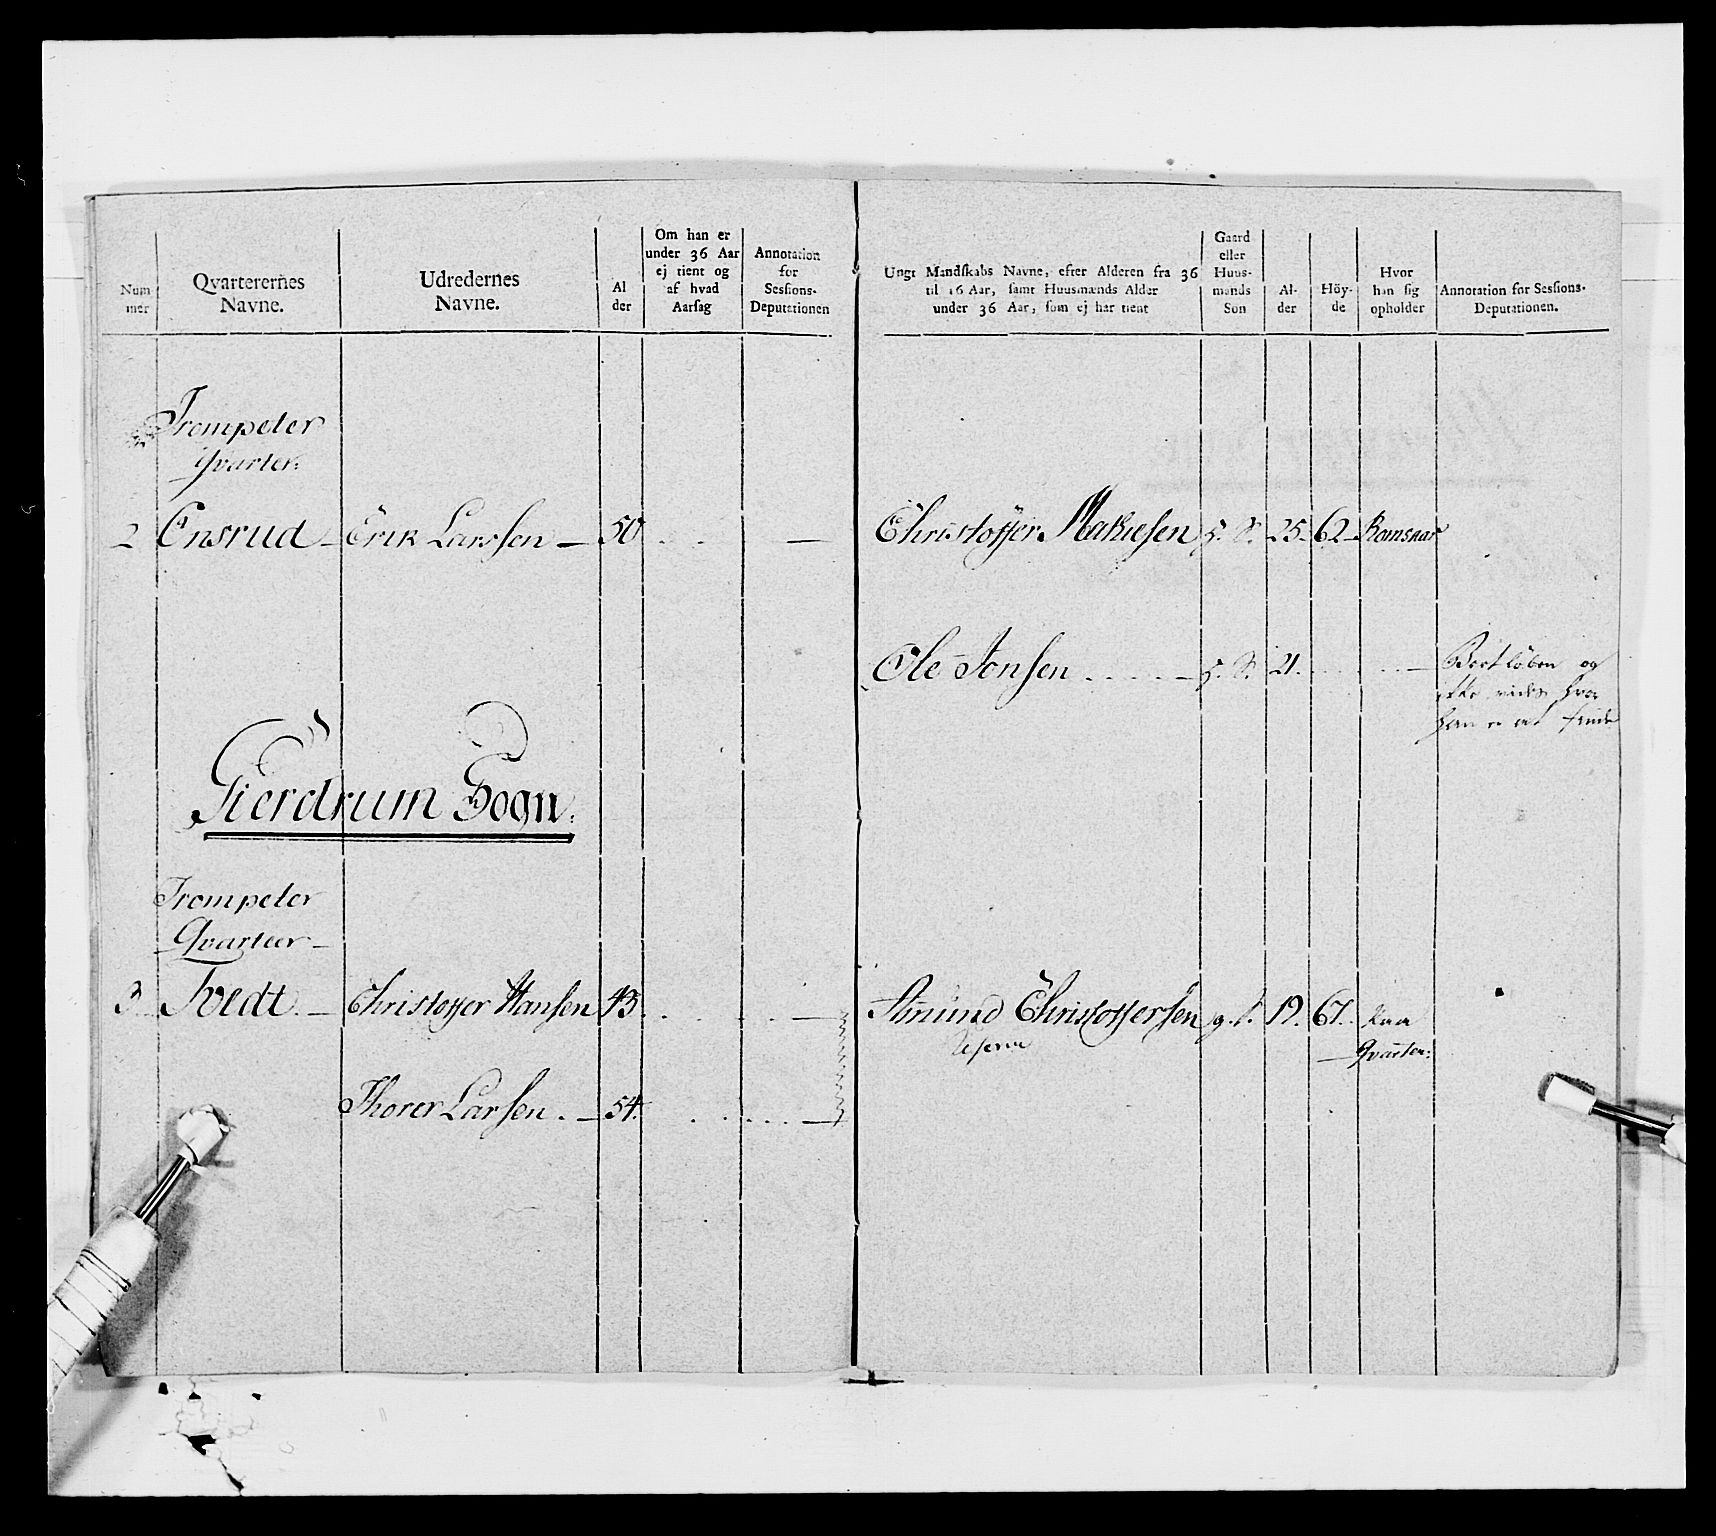 Num
mer
Qvarterernes
Navne.
Udredernes
Navne.
Al
der
Om han er
under 36 Aar
ej tient og
af hvad
Aarsag
Annotation
for
Sessions-
Deputationen
Ungt Mandskabs Navne, efter Alderen fra 36
til 16 Aar, samt Huusmænds Alder
under 36 Aar, som ej har tient
Gaard
eller
Huus-
mands
Son
Al-
der
Höy-
de
Hvor
han sig
opholder
Annotation for Sessions-
Deputationen.
Trompeter
Qvarter.
2 Ensrud Erik Larssen 50 Christoffer Mathiesen 25 62 Romsaas
Ole Jonsen 21. Bortlöben og
ikke vides hvor
han er at finde
Gierdrum Sogn.
Trompeter
Qvarteer
3 Tvedt Christoffer Hansen 43 Amund Christoffersen g. S. 19. 67. paa
Qvarteer.
Thorer Larsen 54.